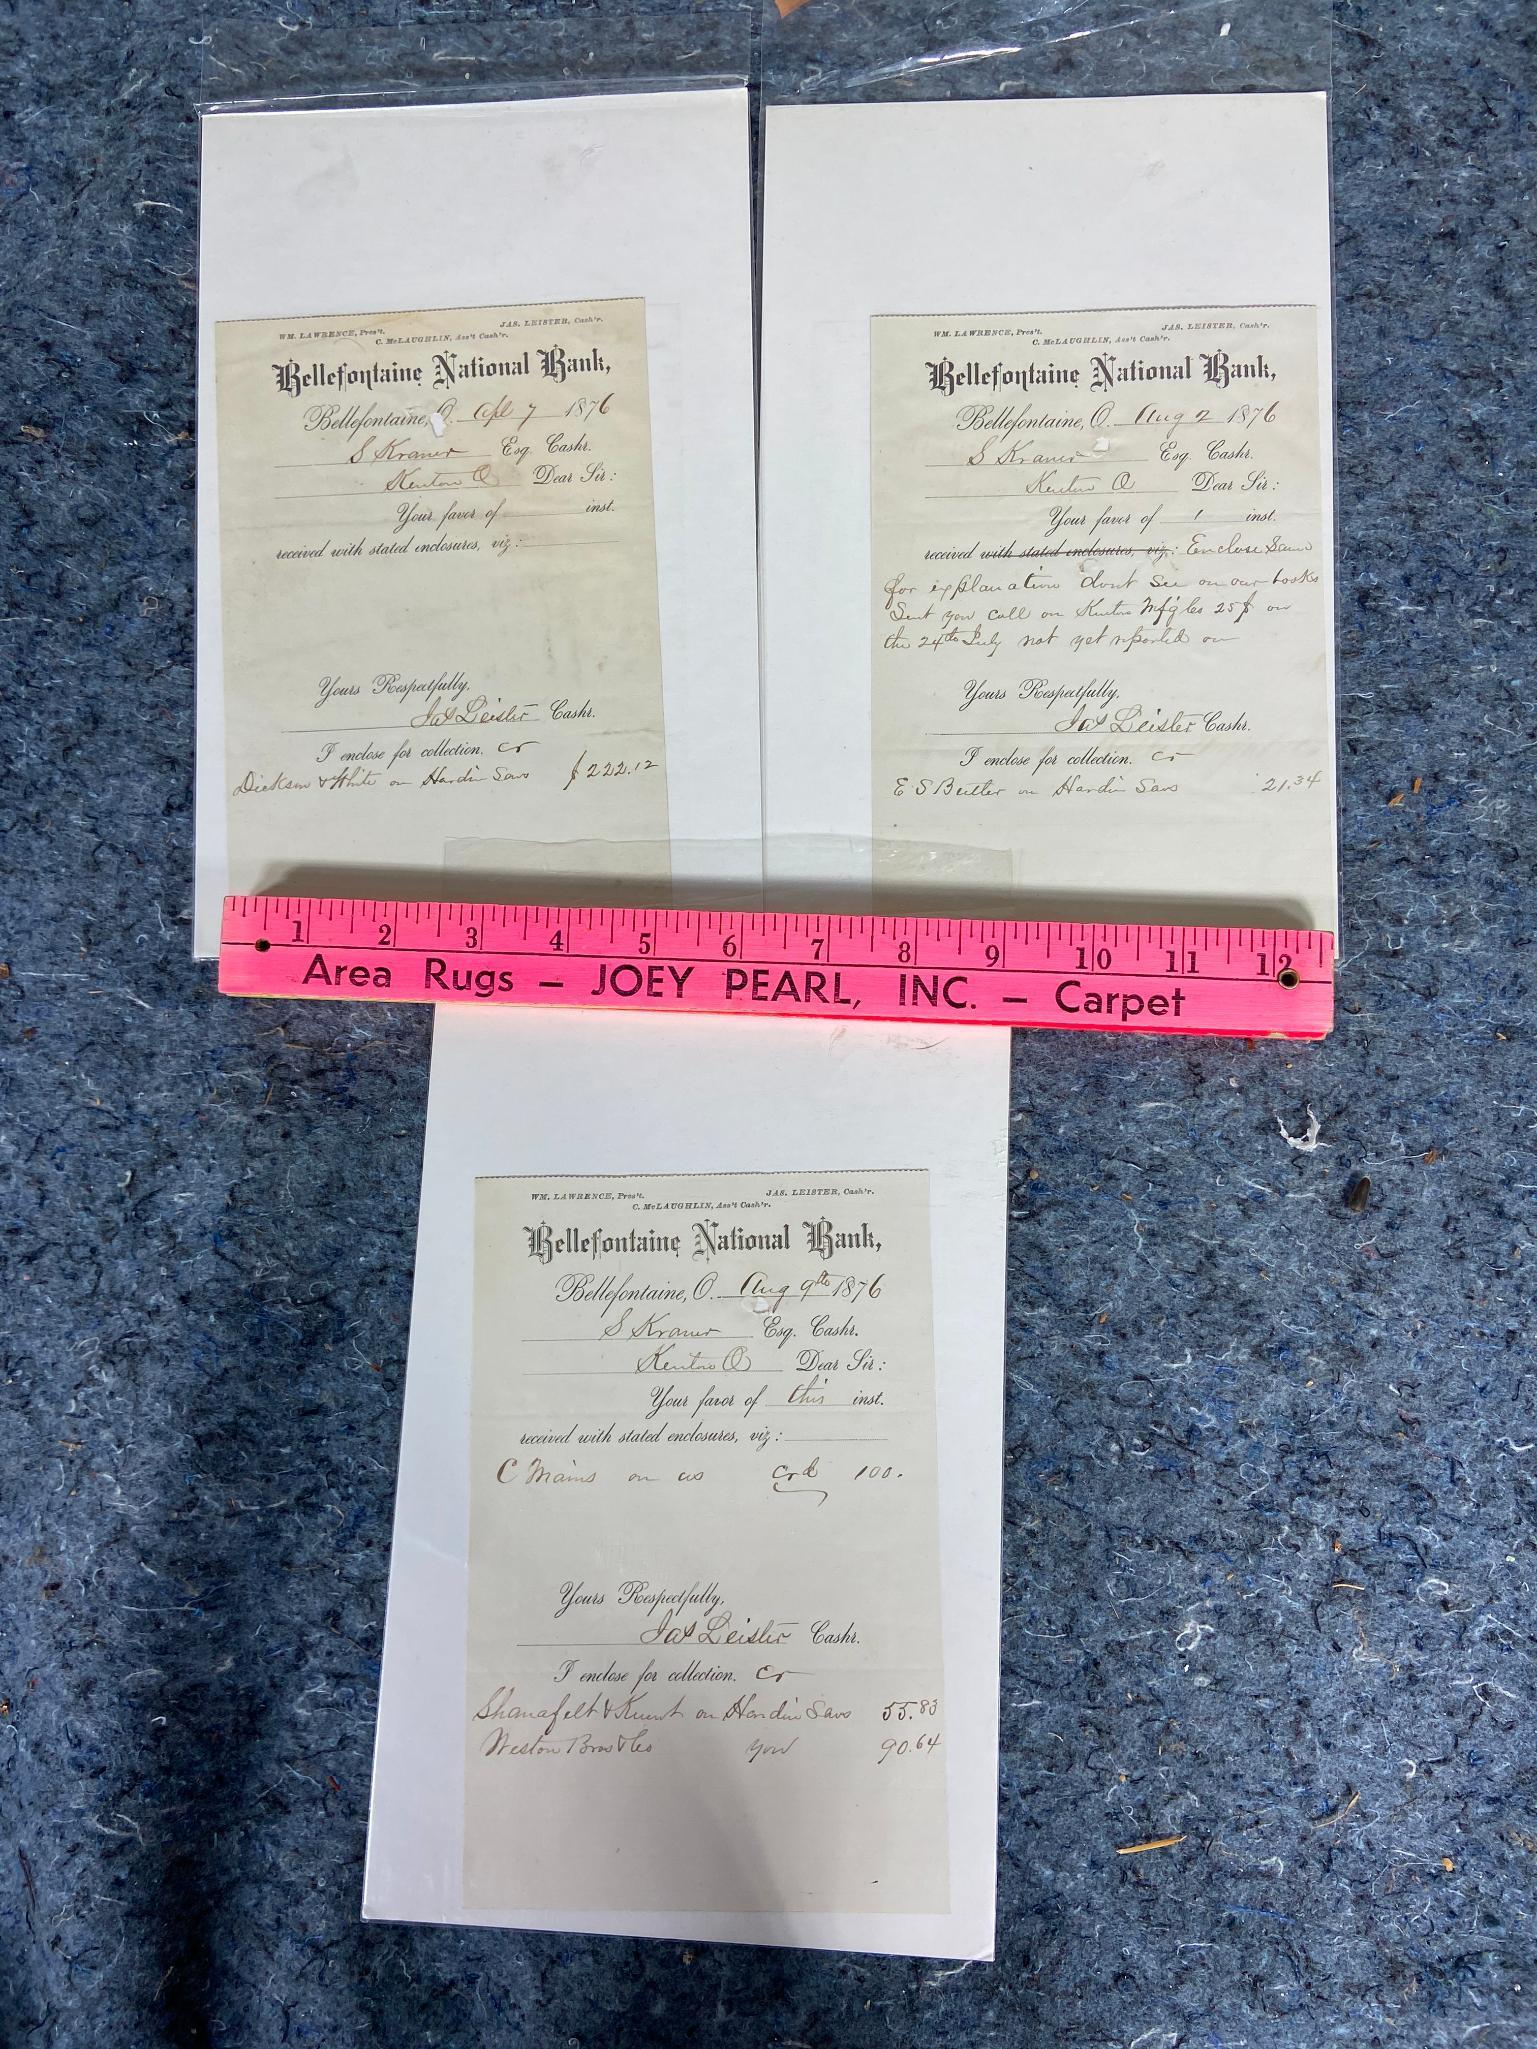 WM. LAWRENCE, Pres't. JAS. LEISTER, Cash'r.
C. McLAUGHLIN, Ass't Cash'r.
Bellefontaine National Bank,
Bellefontaine, O. Apl 7 1876
S Kraner Esq. Cashr.
Kenton O Dear Sir:
Your favor of inst.
received with stated enclosures, viz:
Yours Respectfully,
Jas Leister Cashr.
I enclose for collection. Cr
Dickson & White on Hardin Savs $222.12
WM. LAWRENCE, Pres't. JAS. LEISTER, Cash'r.
C. McLAUGHLIN, Ass't Cash'r.
Bellefontaine National Bank,
Bellefontaine, O. Aug 2 1876
S Kraner Esq. Cashr.
Kenton O Dear Sir:
Your favor of 1 inst.
received with stated enclosures, viz: Enclose Same
for explanation dont See on our books
Sent you call on Kenton Mfg Co 25 on
the 24th July not yet reported on
Yours Respectfully,
Jas Leister Cashr.
I enclose for collection. Cr
E S Butler on Hardin Savs 21.34
1 2 3 4 5 6 7 8 9 10 11 12
Area Rugs – JOEY PEARL, INC. – Carpet
WM. LAWRENCE, Pres't. JAS. LEISTER, Cash'r.
C. McLAUGHLIN, Ass't Cash'r.
Bellefontaine National Bank,
Bellefontaine, O. Aug 9th 1876
S Kraner Esq. Cashr.
Kenton O Dear Sir:
Your favor of this inst.
received with stated enclosures, viz:
C Mains on us crd 100.
Yours Respectfully,
Jas Leister Cashr.
I enclose for collection. Cr
Shanafelt & on Hardin Savs 55.83
Weston Bros & Co you 90.64